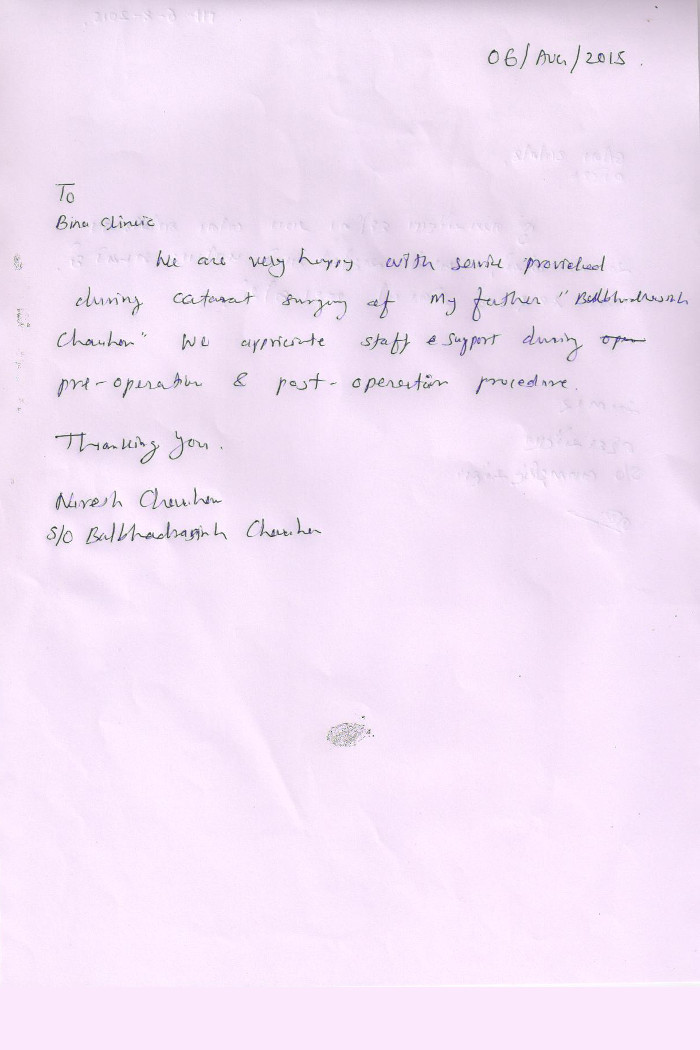 06/Aug/2015.
To
Bina Clineic
We are very happy with service provided
during cataract surgery of my father "Balbhadrasinh
Chauhan" We appriciate staff & support during
pre-operation & post-operation procedure.
Thanking you.
Niresh Chauhan
S/O Balbhadrasinh Chauhan